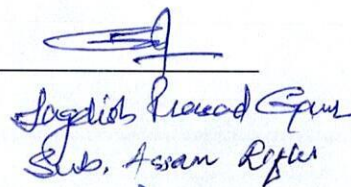 Jagdish Prasad Gaur
Sub. Assam Rifles